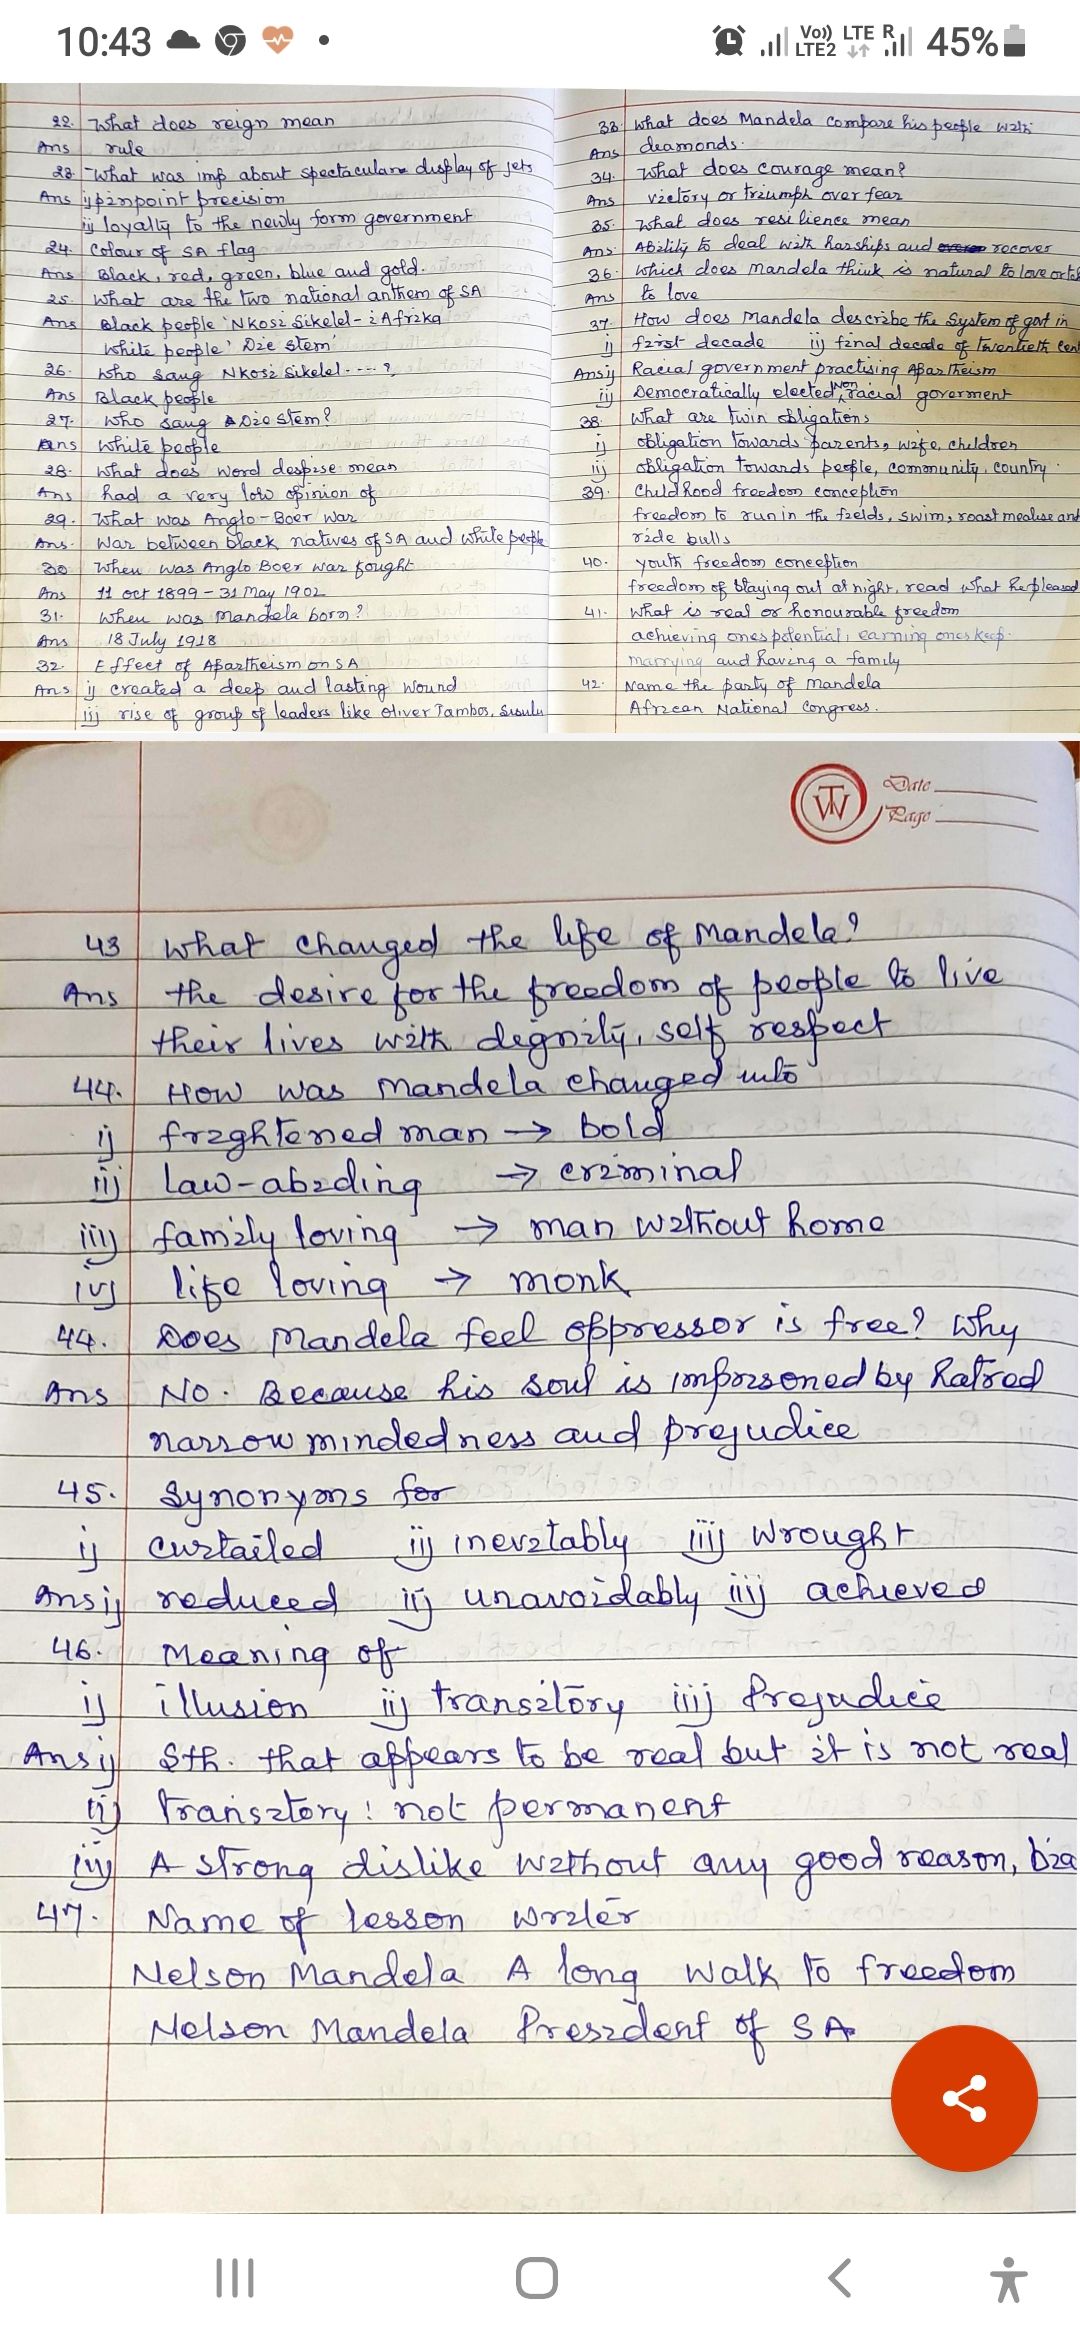 10:43
Vo)) LTE R
LTE2
45%
22. What does reign mean
Ans rule
23. What was imp about spectacular display of jets
Ans i) pinpoint precision
ii) loyalty to the newly form government
24. Colour of SA flag
Ans Black, red, green, blue and gold.
25. What are the two national anthem of SA
Ans Black people 'Nkosi Sikelel-iAfrika
White people ' Die Stem'
26. Who sang Nkosi Sikelel ---- ?
Ans Black people
27. Who sang Die Stem?
Ans White people
28. What does word despise mean
Ans had a very low opinion of
29. What was Anglo-Boer war
Ans. War between black natives of SA and white people
30 When was Anglo Boer war fought
Ans 11 oct 1899 - 31 May 1902
31. When was Mandela born?
Ans 18 July 1918
32. Effect of Apartheism on SA
Ans i) created a deep and lasting wound
ii) rise of group of leaders like Oliver Tambos, Sisulu
33. What does Mandela compare his people with
Ans deamonds.
34. What does courage mean?
Ans victory or triumph over fear
35. What does resilience mean
Ans. Ability to deal with harships and recover
36. Which does Mandela think is natural to love or
Ans to love
37. How does Mandela describe the system of govt in
i) first decade ii) final decade of twentieth
Ans i) Racial government practising Apartheism
ii) Democratically elected Non racial goverment
38. What are twin obligations
i) obligation towards parents, wife, children
ii) obligation towards people, community, country.
39. Childhood freedom conception
freedom to run in the fields, swim, roast mealise and
ride bulls
40. youth freedom conception
freedom of staying out at night, read what he pleased
41. What is real or honourable freedom
achieving ones potential, earning ones keep.
marrying and having a family
42. Name the party of Mandela
African National Congress.
TW
Date
Page
43 What changed the life of Mandela?
Ans the desire for the freedom of people to live
their lives with dignity, self respect
44. How was Mandela changed into
i) frightened man → bold
ii) law-abiding → criminal
iii) family loving → man without home
iv) life loving → monk
44. Does Mandela feel oppressor is free? Why
Ans No. Because his soul is imprisoned by hatred
narrow mindedness and prejudice
45. Synonyms for
i) curtailed ii) inevitably iii) wrought
Ans i) reduced ii) unavoidably iii) achieved
46. Meaning of
i) illusion ii) transitory iii) Prejudice
Ans i) Sth. that appears to be real but it is not real
ii) transitory : not permanent
iii) A strong dislike without any good reason, bia
47. Name of lesson writer
Nelson Mandela A long walk to freedom
Nelson Mandela President of SA